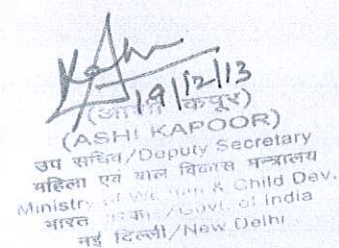 19/12/13
(आशी कपूर)
(ASHI KAPOOR)
उप सचिव/Deputy Secretary
महिला एवं बाल विकास मन्त्रालय
Ministry of & Child Dev.
भारत /Govt. of India
नई दिल्ली/New Delhi